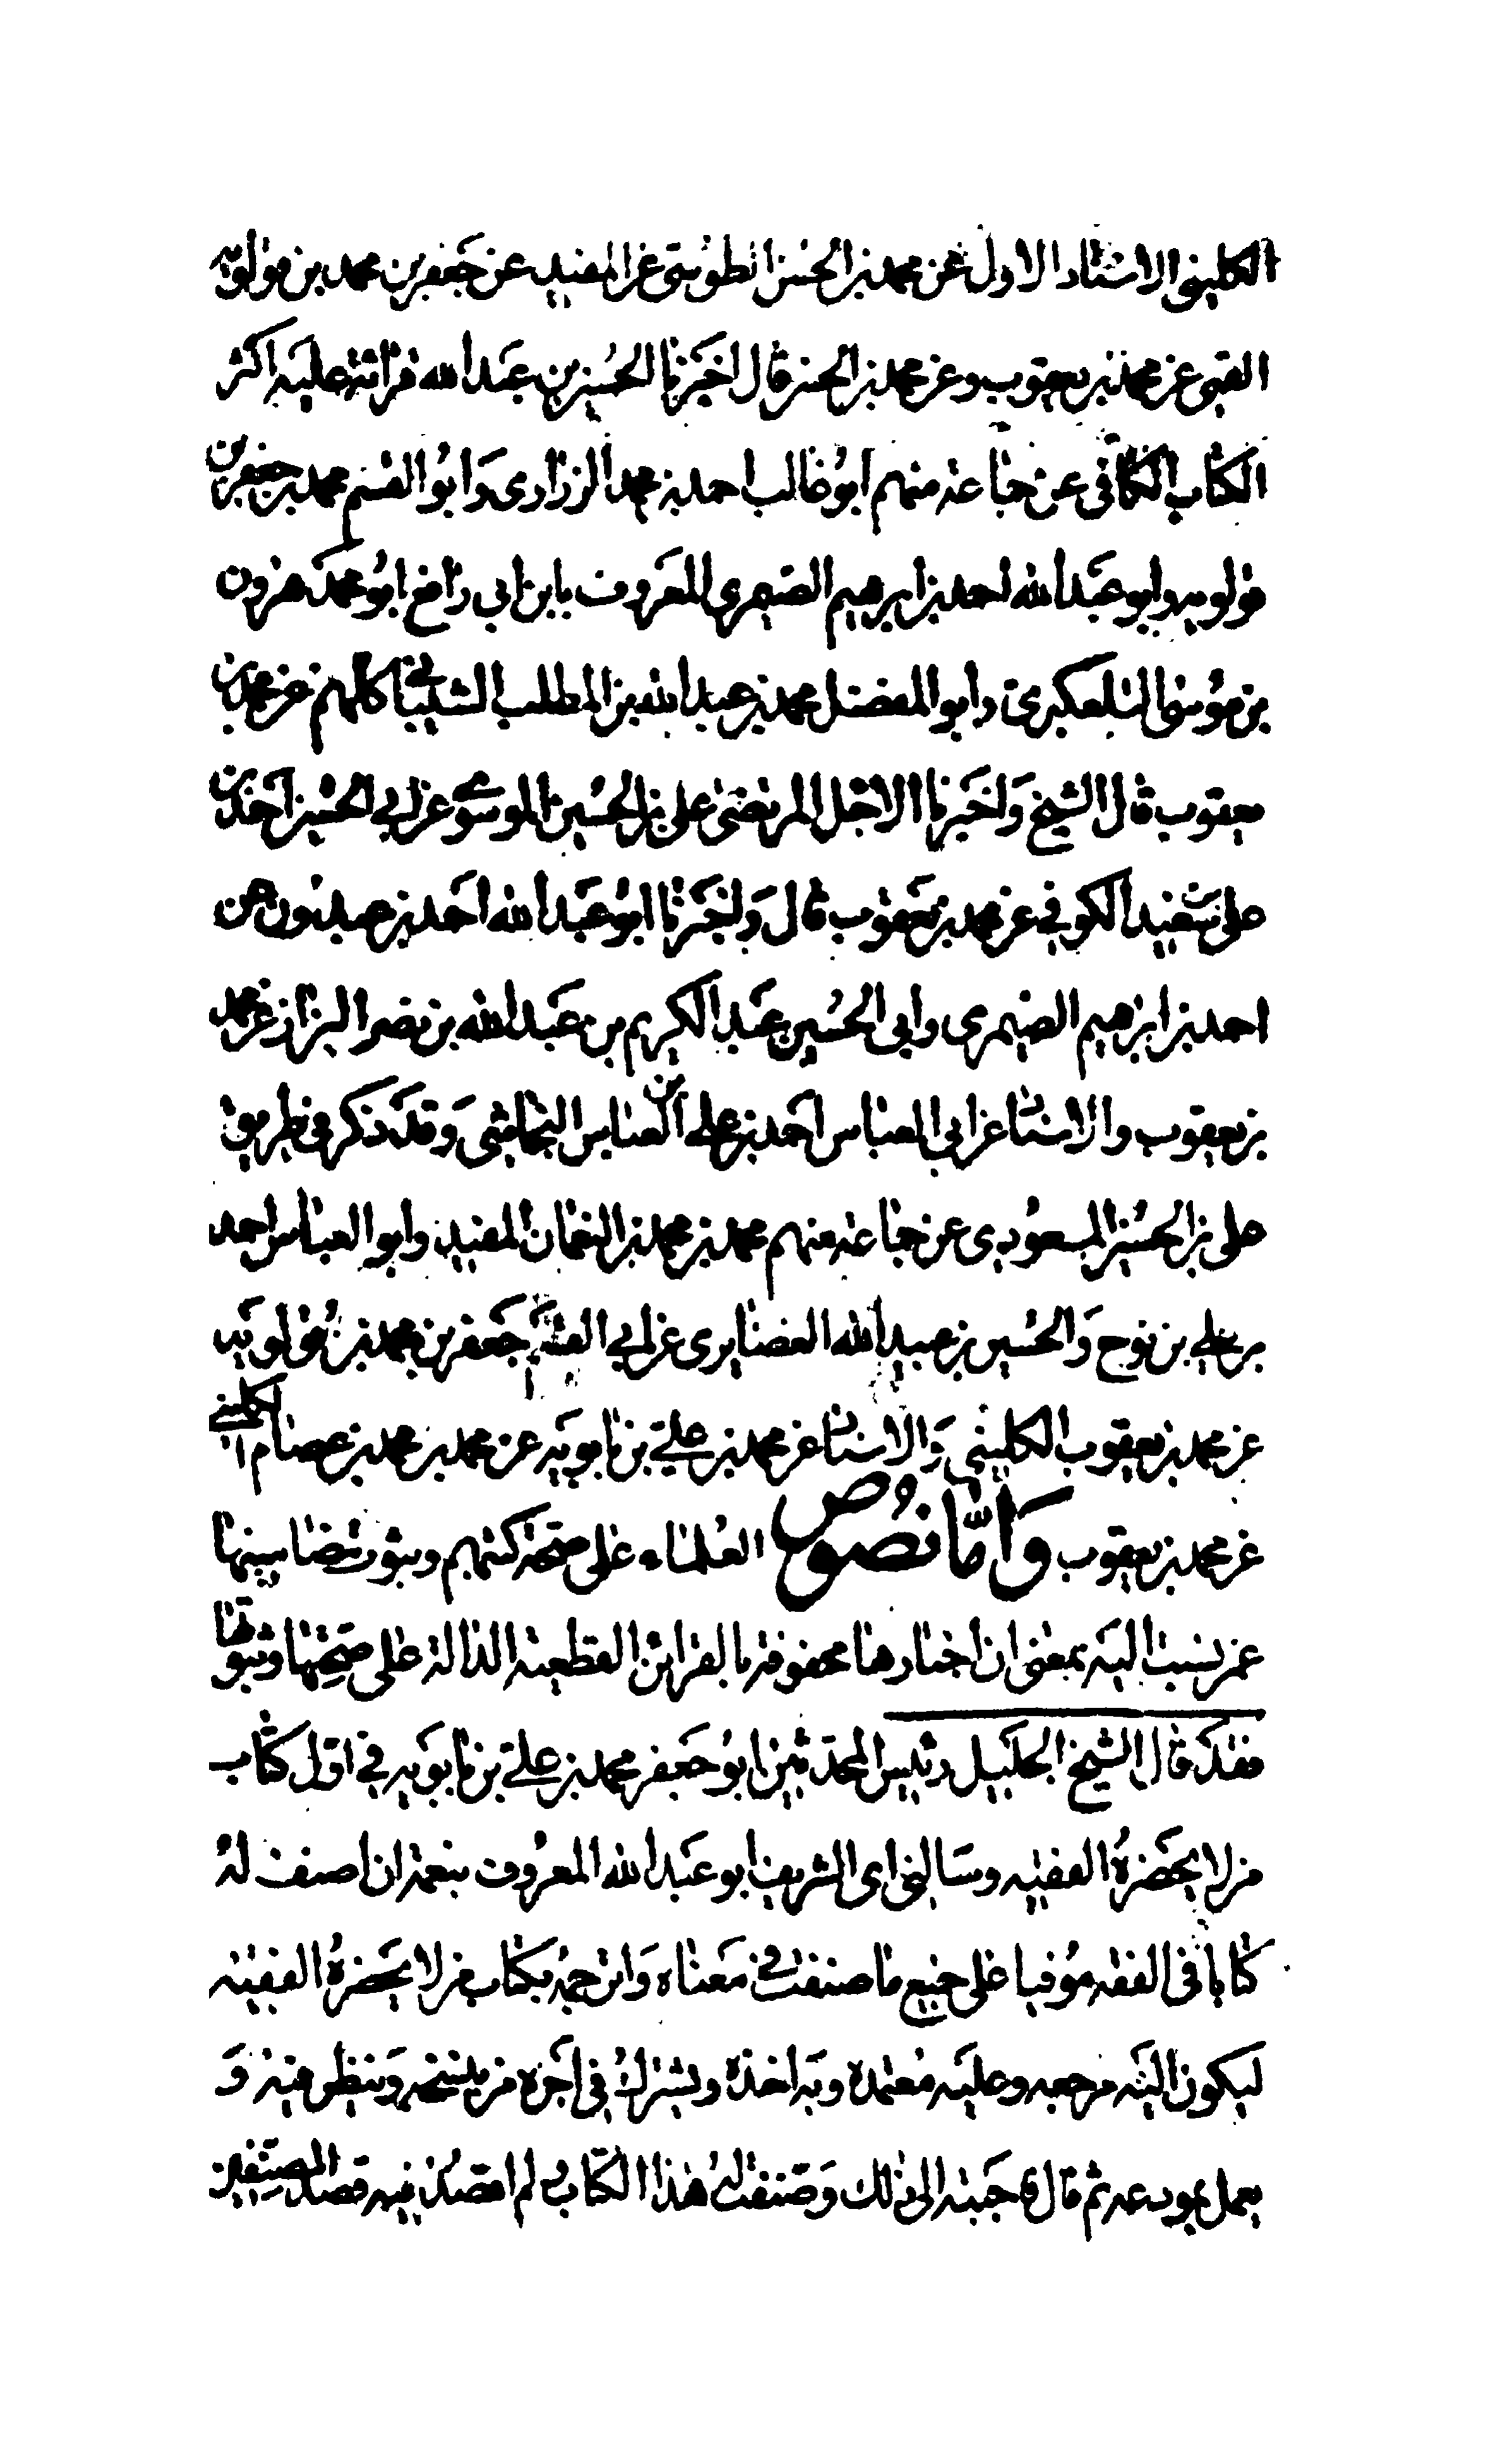 الكليني الاسناد الاول عن محمد بن الحسن الطوسي عن المفيد عن جعفر بن محمد بن قولويه
القمي عن محمد بن يعقوب وعن محمد بن الحسن قال اخبرنا الحسين بن عبد الله قرائة عليه اكثر
الكتاب الكافي عن جماعة منهم ابو غالب احمد بن محمد الزراري وَابو القسم محمد بن جعفر بن
قولويه وابو عبد الله احمد بن ابرهيم الصيمري المعروف بابن ابي رافع ابو محمد هرون
بن موسى التلعكبري وابو المفضل محمد بن عبد الله بن المطلب الشيباني كلهم عن محمد بن
يعقوب قال الشيخ وَاخبرنا الاجل المرتضى علي بن الحسين الموسوي عن ابي الحسين احمد بن
علي بن سعيد الكوفي عن محمد بن يعقوب قال وَاخبرنا ابو عبد الله احمد بن عبدون عن
احمد بن ابرهيم الصيمري وابي الحسين عبد الكريم بن عبد الله بن نصر البزاز عن محمد
بن يعقوب والاسناد عن ابي العباس احمد بن علي بن العباس النجاشي وَقد ذكر في طريق
علي بن الحسين المسعودي عن جماعة منهم محمد بن محمد بن النعمان المفيد وابو العباس احمد
بن علي بن نوح وَالحسين بن عبيد الله الغضايري عن ابي القسم جعفر بن محمد بن قولويه
عن محمد بن يعقوب الكليني وَالاسناد عن محمد بن علي بن بابويه عن محمد بن محمد بن عصام الكليني
عن محمد بن يعقوب وَاَمّا نصُوص العُلماء على صحة كتبهم وثبوت مضامينها
عمن نسبت اليه بمعنى ان اخبارها محفوفة بالقرائن القطعية الدالة على صحتها وثبوتها
فقد قال الشيخ الجليل رئيس المحدثين ابو جعفر محمد بن علي بن بابويه في اول كتاب
من لا يحضرهُ الفقيه وسالني اي الشريف ابو عبد الله المعروف بنعمة ان اصنف له
كتابا في الفقه موُفيا على جميع ما صنفت في معناه وَاترجمهُ بكتاب من لا يحضرهُ الفقيه
ليكون اليه مرجعه وعليه مُعتمده وبه اخذه ويشترك في اجره من ينسخه وينظر فيه وَ
يعمل بمودعه ثم قال فاجبته الى ذلك وَصنفت له هذا الكتاب لم اقصد فيه قصد المصنفين